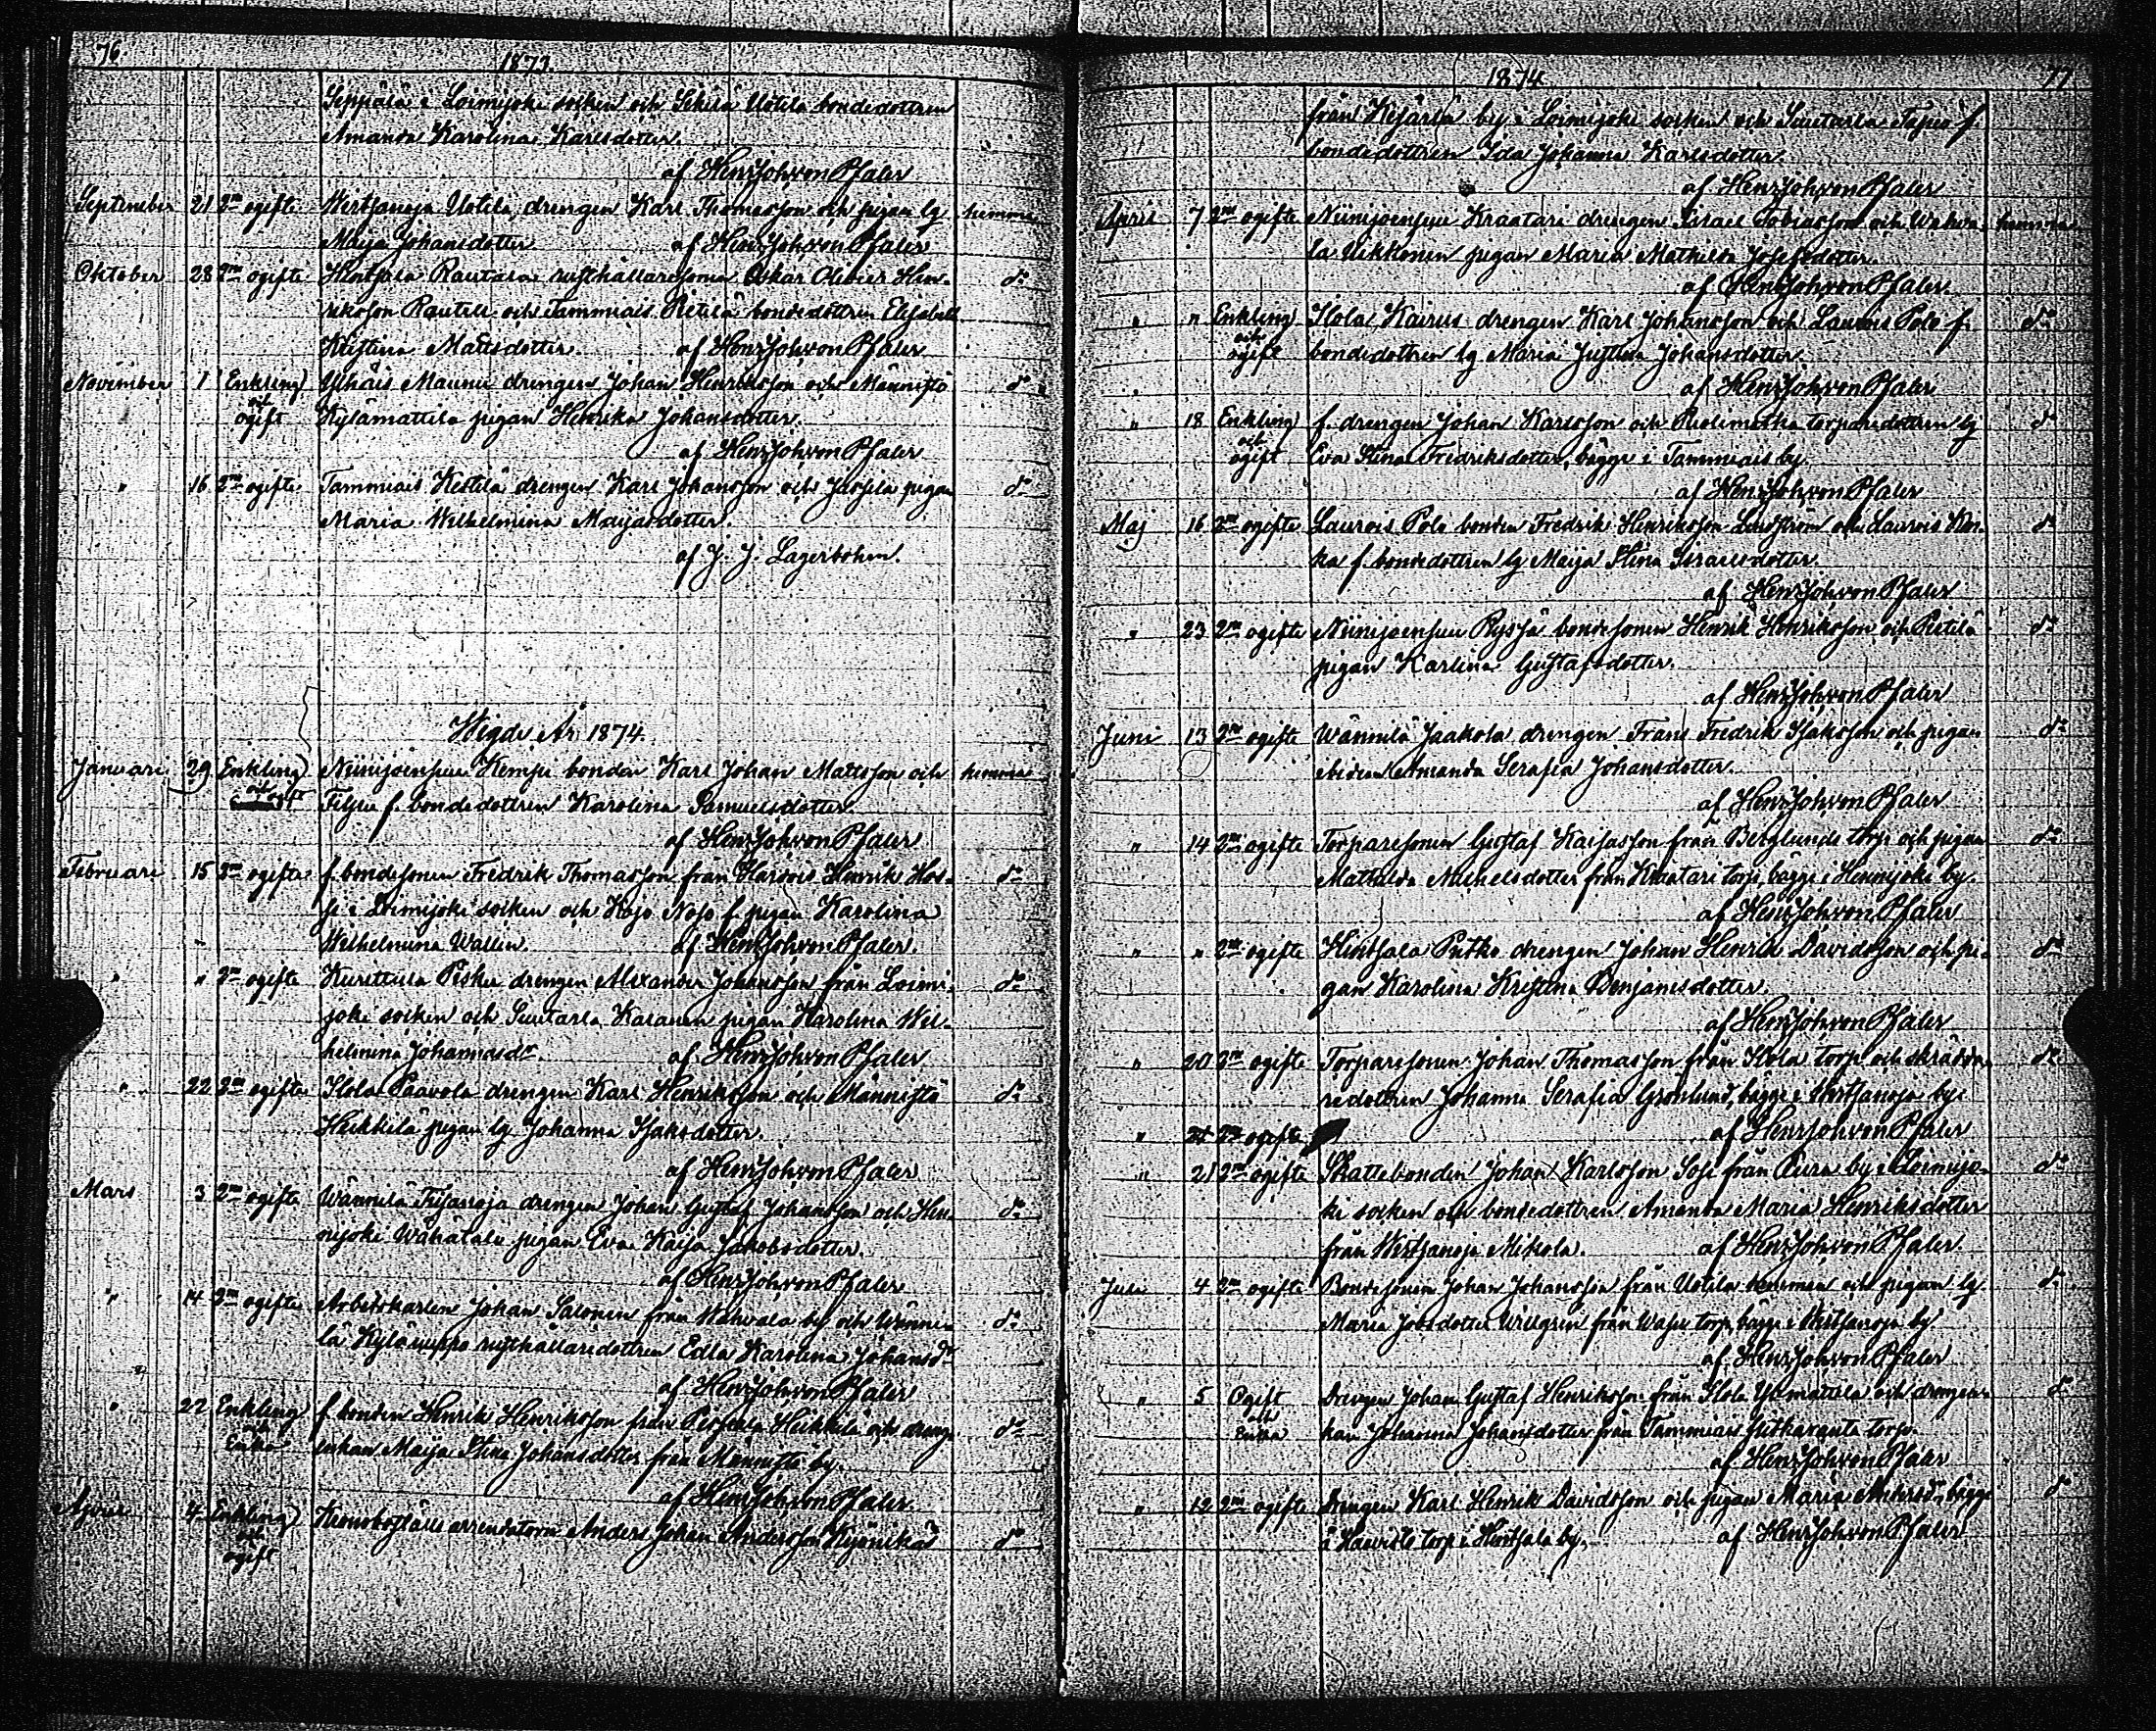 76
1873.
Seppälä i Loimijoki socken och Sekilä Uotila bondedottren
Amanda Karolina Karlsdotter.
af HenrJohvonPfaler
September 21 2ne ogifte Wirtsanoja Uotila drengen Karl Thomasson och pigan lg hemma
Maija Johansdotter af HenrJohvonPfaler
Oktober 28 2ne ogifte Hintsala Rautala rusthållaresonen Oskar Olivier Hen- do
riksson Rautell och Tammiais Pietilä bondedottren Elisabeth
Kristina Mattsdotter. af HenrJohvonPfaler
November 1 Enkling Ylhäis Maunu drengen Johan Henriksson och Männistö do
och
ogift Kylämattila pigan Henrika Johansdotter.
af HenrJohvonPfaler
" 16 2ne ogifte Tammiais Kestilä drengen Karl Johansson och pigan do
Maria Wilhelmina Maijasdotter.
af J. J. Lagerbohm.
Wigde År 1874.
Januari 29 Enkling Niinijoensuu Kemppi bonden Karl Johan Mattsson och hemma
och ogift f. bondedottren Karolina Samuelsdotter.
af HenrJohvonPfaler
Februari 15 2ne ogifte f. bondesonen Fredrik Thomasson från Henrik Hos- do
si i Loimijoki socken och Kojo Noso f. pigan Karolina
Wilhelmina Wallin. af HenrJohvonPfaler.
" " 2ne ogifte Kurittula Pesku drengen Alexander Johansson från Loimi- do
joki socken och Suutarla pigan Karolina Wil-
helmina Johansdr. af HenrJohvonPfaler
" 22 2ne ogifte Ilola Paavola drengen Karl Henriksson och Männistö do
Heikkilä pigan lg Johanna Isaksdotter.
af HenrJohvonPfaler
Mars 3 2ne ogifte Wännilä drengen Johan Gustaf Johansson och Hen- do
nijoki Wähätalu pigan Eva Kaisa Jakobsdotter.
af HenrJohvonPfaler
" 14 2ne ogifte Arbetskarlen Johan Salonen från Wahvala by och Wänni- do
lä Kylänuppo rusthållaredottren Edla Karolina Johansdr
af HenrJohvonPfaler
" 22 Enkling f. bonden Henrik Henriksson från Heikkilä och dreng- do
och
Enka enkan Maija Stina Johansdotter från Männistö by.
af HenrJohvonPfaler.
April 4 Enkling Kronobostälts arrendatorn Anders Johan Andersson do
och
ogift
1874
77
från by i Loimijoki socken och Suutarla Tapio f.
bondedottren Ida Johanna Karlsdotter.
af HenrJohvonPfaler
April 7 2ne ogifte Niinijoensuu Kraatari drengen Israel Tobiasson och Wahva- hemma
la Uikkonen pigan Maria Mathilda Josefsdotter.
af HenrJohvonPfaler.
" " Enkling Ilola Kairus drengen Karl Johansson och Laurois Polo f. do
och
ogift bondedottren lg Maria Justina Johansdotter.
af HenrJohvonPfaler
" 18 Enkling f. drengen Johan Karlsson och torparedottren lg do
och
ogift Eva Stina Fredriksdotter, bägge i Tammiais by.
af HenrJohvonPfaler
Maj 16 2ne ogifte Laurois Polo bonden Fredrik Henriksson Lindström och Laurois Kas- do
ka f. bondedottren lg Maija Stina Israelsdotter.
af HenrJohvonPfaler
" 23 2ne ogifte Niinijoensuu Ryssä bondesonen Henrik Henriksson och Pietilä do
pigan Karlina Gustafsdotter.
af HenrJohvonPfaler
Juni 13 2ne ogifte Wännilä Jaakola drengen Frans Fredrik Isaksson och pigan do
Amanda Serafia Johansdotter.
af HenrJohvonPfaler
" 14 2ne ogifte Torparesonen Gustaf Kaisasson från Berglunds torp och pigan do
Mathilda Michelsdotter från Kraatari torp, bägge i Hennijoki by.
af HenrJohvonPfaler
" " 2ne ogifte Hintsala Putko drengen Johan Henrik Davidsson och pi- do
gan Karolina Kristina Benjamsdotter.
af HenrJohvonPfaler
" 20 2ne ogifte Torparesonen Johan Thomasson från Ilola torp och skrädda- do
redottren Johanna Serafia Grönlund, bägge i Wirtsanoja by.
" 21 2ne ogifte af HenrJohvonPfaler
" 21 2ne ogifte Skattebonden Johan Karlsson Sosi från by i Loimijo- do
ki socken och bondedottren Amanda Maria Henriksdotter
från Wirtsanoja Mikola. af HenrJohvonPfaler.
Juli 4 2ne ogifte Bondesonen Johan Johansson från Uotila hemman och pigan lg do
Maria Jobsdotter från torp, bägge i Wirtsanoja by.
af HenrJohvonPfaler
" 5 Ogift Drengen Johan Gustaf Henriksson från Ilola Ylimattila och drengen- do
och
Enka kan Johanna Johansdotter från Tammiais torp.
af HenrJohvonPfaler
" 12 2ne ogifte Drengen Karl Henrik Davidsson och pigan Maria Andersdr, bägge do
å Haavisto torp i Hintsala by. af HenrJohvonPfaler